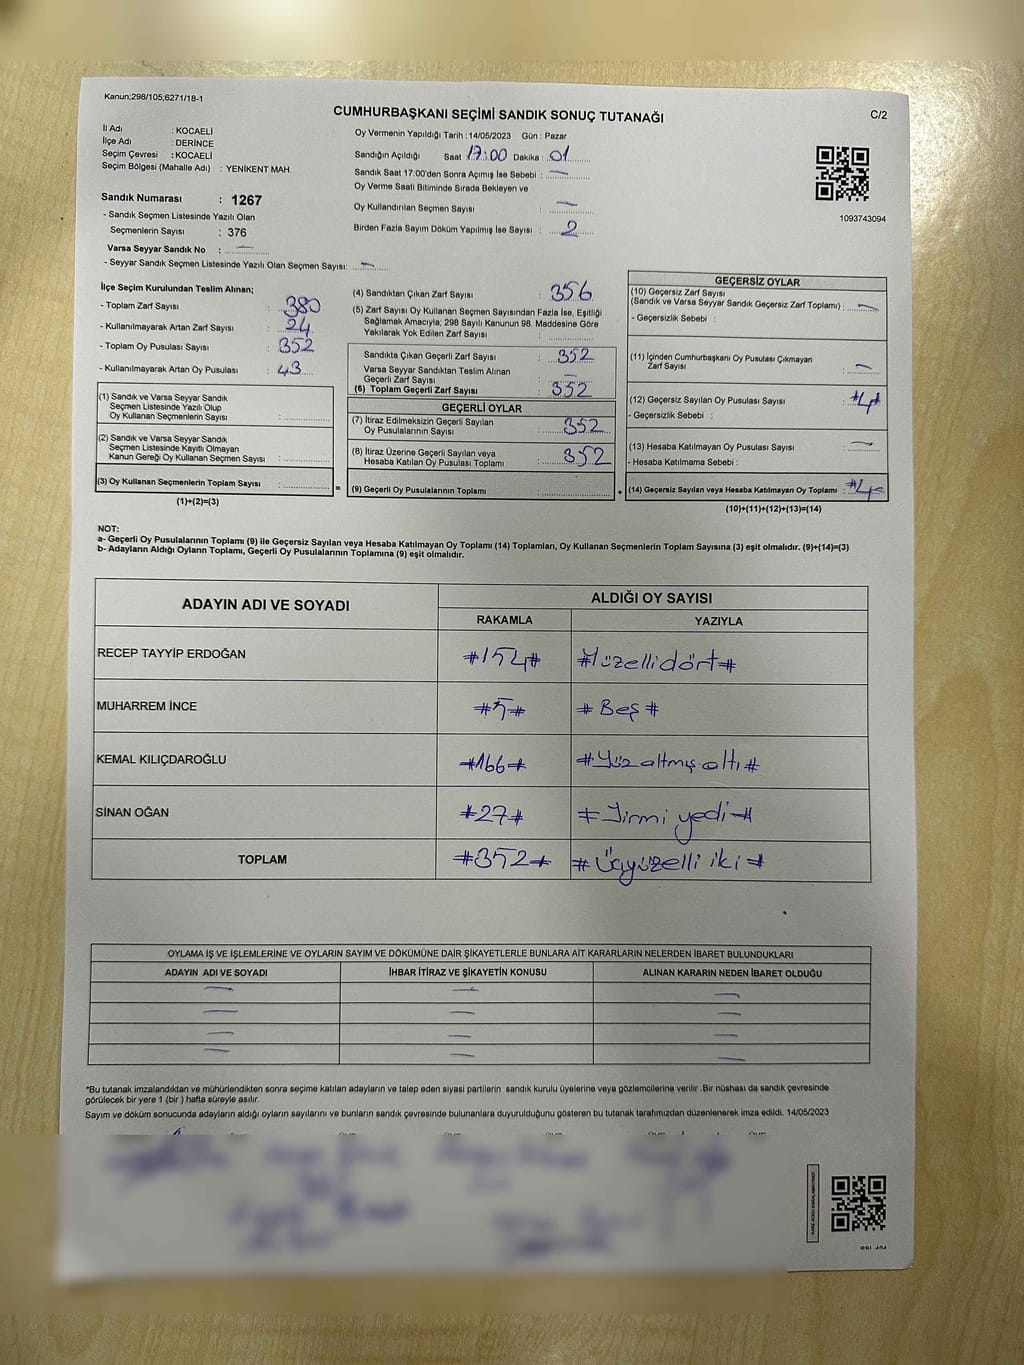 Kanun;298/105;6271/18-1
CUMHURBAŞKANI SEÇİMİ SANDIK SONUÇ TUTANAĞI
C/2
İl Adı : KOCAELİ
İlçe Adı : DERİNCE
Seçim Çevresi : KOCAELİ
Seçim Bölgesi (Mahalle Adı) : YENİKENT MAH.
Oy Vermenin Yapıldığı Tarih : 14/05/2023 Gün : Pazar
Sandığın Açıldığı Saat 17:00 Dakika : 01
Sandık Saat 17:00'den Sonra Açımış İse Sebebi : —
Oy Verme Saati Bitiminde Sırada Bekleyen ve
Oy Kullandırılan Seçmen Sayısı : —
Birden Fazla Sayım Döküm Yapılmış İse Sayısı : 2
1093743094
Sandık Numarası : 1267
- Sandık Seçmen Listesinde Yazılı Olan
Seçmenlerin Sayısı : 376
Varsa Seyyar Sandık No : —
- Seyyar Sandık Seçmen Listesinde Yazılı Olan Seçmen Sayısı: —
İlçe Seçim Kurulundan Teslim Alınan;
- Toplam Zarf Sayısı : 380
- Kullanılmayarak Artan Zarf Sayısı : 24
- Toplam Oy Pusulası Sayısı : 352
- Kullanılmayarak Artan Oy Pusulası : 43
(1) Sandık ve Varsa Seyyar Sandık
Seçmen Listesinde Yazılı Olup
Oy Kullanan Seçmenlerin Sayısı :
(2) Sandık ve Varsa Seyyar Sandık
Seçmen Listesinde Kayıtlı Olmayan
Kanun Gereği Oy Kullanan Seçmen Sayısı :
(3) Oy Kullanan Seçmenlerin Toplam Sayısı :
(1)+(2)=(3)
=
(4) Sandıktan Çıkan Zarf Sayısı : 356
(5) Zarf Sayısı Oy Kullanan Seçmen Sayısından Fazla İse, Eşitliği
Sağlamak Amacıyla; 298 Sayılı Kanunun 98. Maddesine Göre
Yakılarak Yok Edilen Zarf Sayısı :
Sandıkta Çıkan Geçerli Zarf Sayısı : 352
Varsa Seyyar Sandıktan Teslim Alınan
Geçerli Zarf Sayısı : —
(6) Toplam Geçerli Zarf Sayısı : 352
GEÇERLİ OYLAR
(7) İtiraz Edilmeksizin Geçerli Sayılan
Oy Pusulalarının Sayısı : 352
(8) İtiraz Üzerine Geçerli Sayılan veya
Hesaba Katılan Oy Pusulası Toplamı : 352
(9) Geçerli Oy Pusulalarının Toplamı :
+
GEÇERSİZ OYLAR
(10) Geçersiz Zarf Sayısı
(Sandık ve Varsa Seyyar Sandık Geçersiz Zarf Toplamı) : —
- Geçersizlik Sebebi :
(11) İçinden Cumhurbaşkanı Oy Pusulası Çıkmayan
Zarf Sayısı : —
(12) Geçersiz Sayılan Oy Pusulası Sayısı : #4#
- Geçersizlik Sebebi :
(13) Hesaba Katılmayan Oy Pusulası Sayısı : —
- Hesaba Katılmama Sebebi :
(14) Geçersiz Sayılan veya Hesaba Katılmayan Oy Toplamı : #4
(10)+(11)+(12)+(13)=(14)
NOT:
a- Geçerli Oy Pusulalarının Toplamı (9) ile Geçersiz Sayılan veya Hesaba Katılmayan Oy Toplamı (14) Toplamları, Oy Kullanan Seçmenlerin Toplam Sayısına (3) eşit olmalıdır. (9)+(14)=(3)
b- Adayların Aldığı Oyların Toplamı, Geçerli Oy Pusulalarının Toplamına (9) eşit olmalıdır.
ADAYIN ADI VE SOYADI
ALDIĞI OY SAYISI
RAKAMLA YAZIYLA
RECEP TAYYİP ERDOĞAN #154# #Yüzellidört#
MUHARREM İNCE #5# #Beş#
KEMAL KILIÇDAROĞLU #166# #Yüzaltmışaltı#
SİNAN OĞAN #27# #Yirmi yedi#
TOPLAM #352# #Üçyüzelli iki#
OYLAMA İŞ VE İŞLEMLERİNE VE OYLARIN SAYIM VE DÖKÜMÜNE DAİR ŞİKAYETLERLE BUNLARA AİT KARARLARIN NELERDEN İBARET BULUNDUKLARI
ADAYIN ADI VE SOYADI İHBAR İTİRAZ VE ŞİKAYETİN KONUSU ALINAN KARARIN NEDEN İBARET OLDUĞU
— — —
— — —
— — —
— — —
*Bu tutanak imzalandıktan ve mühürlendikten sonra seçime katılan adayların ve talep eden siyasi partilerin sandık kurulu üyelerine veya gözlemcilerine verilir .Bir nüshası da sandık çevresinde
görülecek bir yere 1 (bir ) hafta süreyle asılır.
Sayım ve döküm sonucunda adayların aldığı oyların sayılarını ve bunların sandık çevresinde bulunanlara duyurulduğunu gösteren bu tutanak tarafımızdan düzenlenerek imza edildi. 14/05/2023